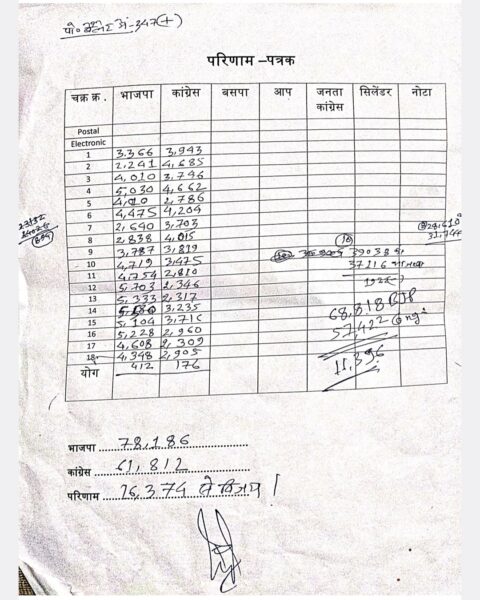 पो० बैलेट अं-347(+)
परिणाम –पत्रक
चक्र क्र. भाजपा कांग्रेस बसपा आप जनता कांग्रेस सिलेंडर नोटा
Postal
Electronic
1 3,366 3,943
2 2,241 4,685
3 4,010 3,746
4 5,030 4,662
5 2,786
6 4,475 4,204
7 2,640 3,703
8 2,838 4,015
9 3,787 3,819
10 4,719 3,475
11 4,754 2,810
12 5,703 2,346
13 5,333 2,317
14 3,235
15 5,104 3,716
16 5,228 2,960
17 4,608 2,309
18 4,348 2,905
योग 412 176
(10)
39038
37116
192
68,818 BJP
57,422 Cong
11,396
31,744
भाजपा 78,186
कांग्रेस 61,812
परिणाम 16,374 से विजय !